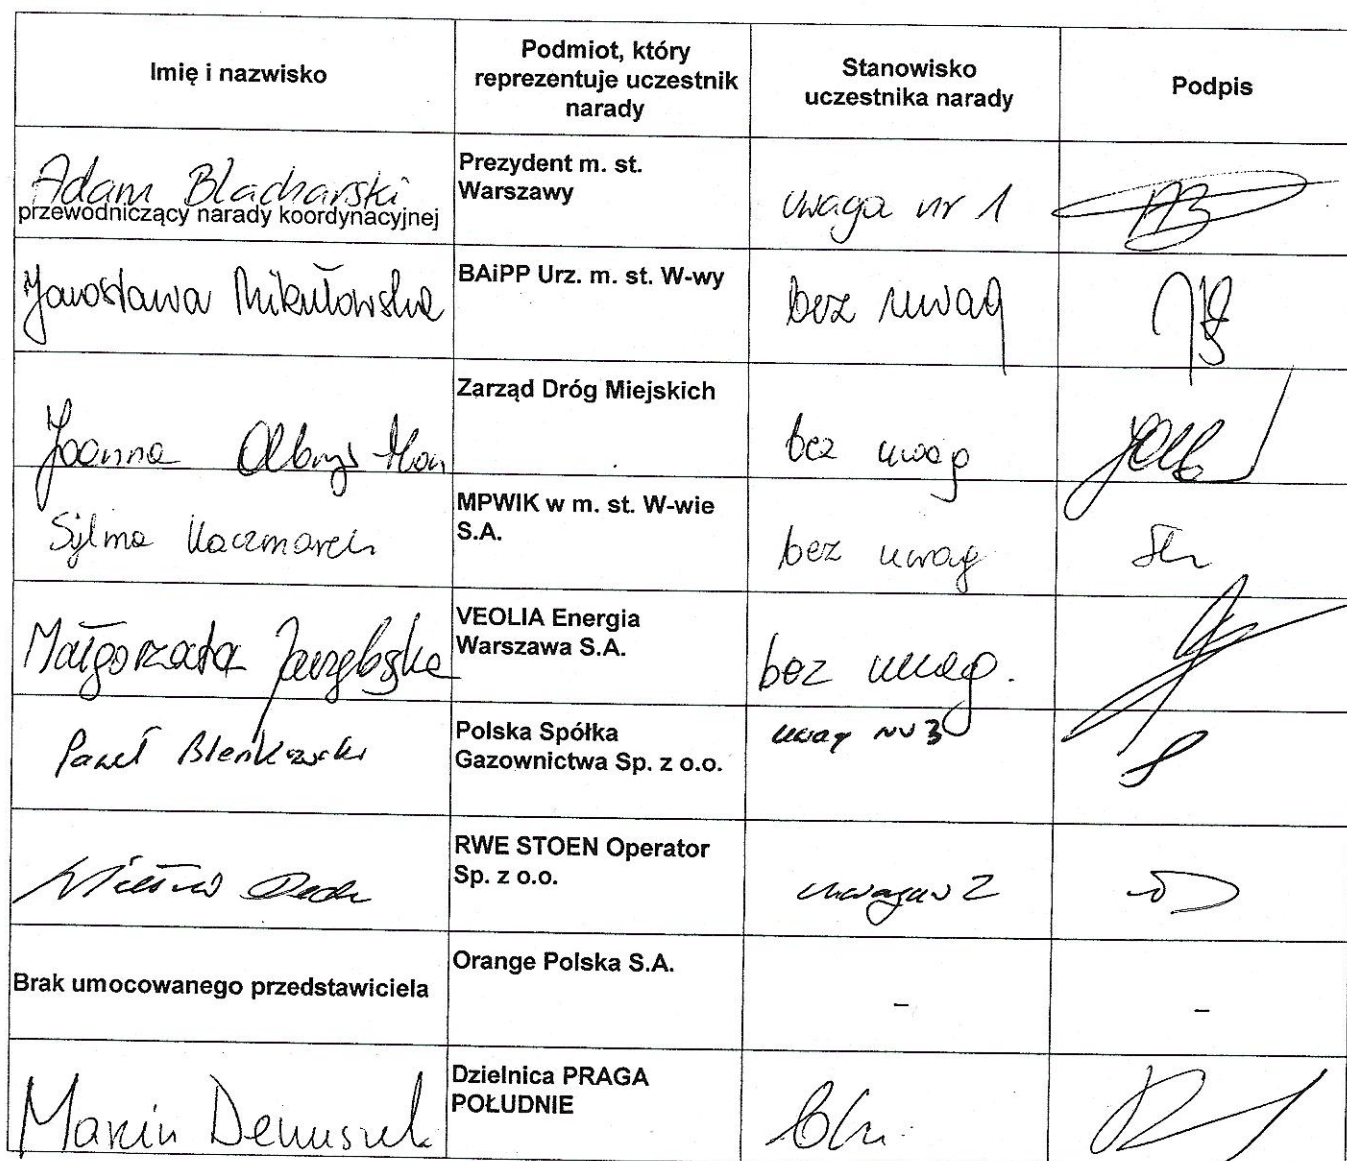 Imię i nazwisko
Podmiot, który
reprezentuje uczestnik
narady
Stanowisko
uczestnika narady
Podpis
Adam Blacharski
przewodniczący narady koordynacyjnej
Prezydent m. st.
Warszawy
uwaga nr 1
Jarosława Mikułowska
BAiPP Urz. m. st. W-wy
bez uwag
Joanna
Zarząd Dróg Miejskich
bez uwag
Kaczmarek
MPWIK w m. st. W-wie
S.A.
bez uwag
Małgorzata
VEOLIA Energia
Warszawa S.A.
bez uwag.
Paweł
Polska Spółka
Gazownictwa Sp. z o.o.
3
RWE STOEN Operator
Sp. z o.o.
2
Brak umocowanego przedstawiciela
Orange Polska S.A.
-
-
Marcin
Dzielnica PRAGA
POŁUDNIE